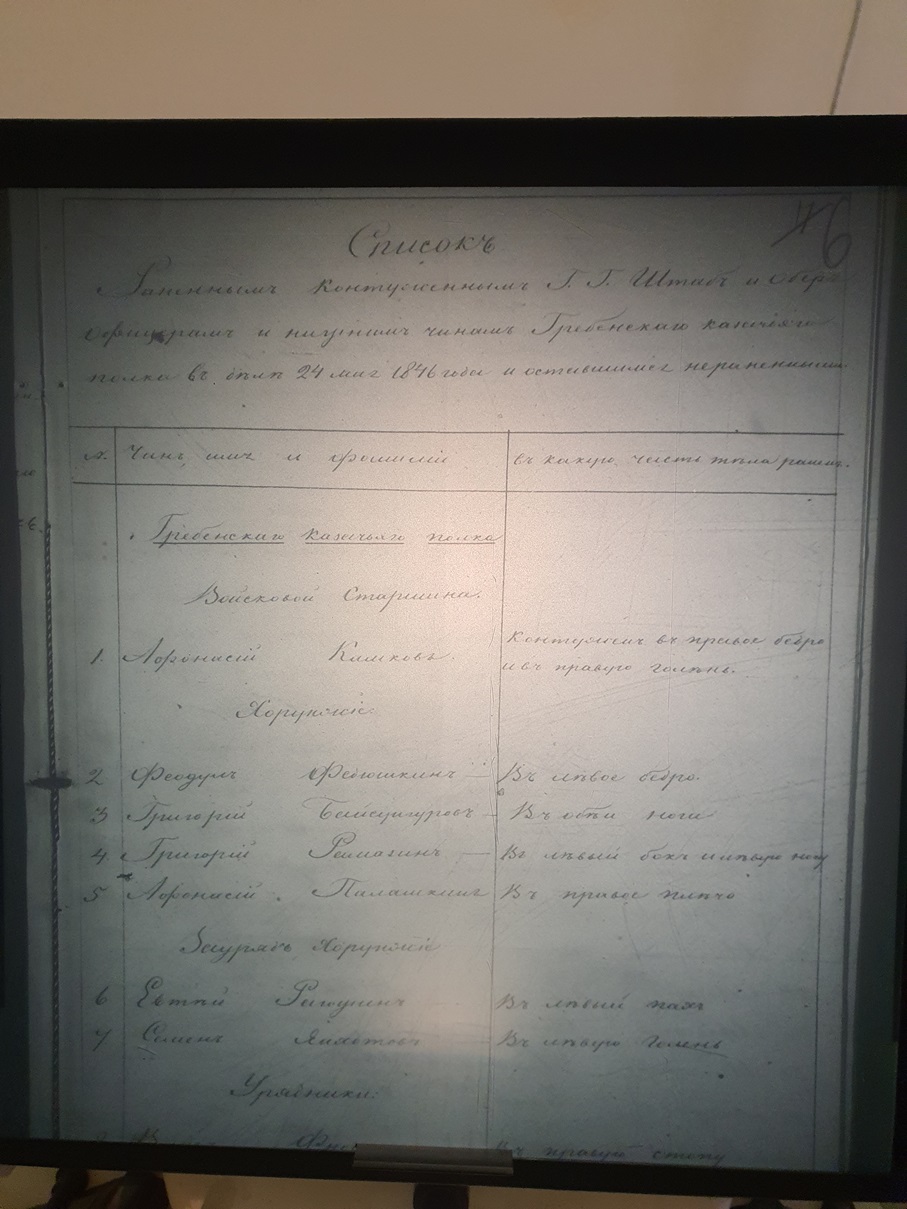 6
Списокъ
Раненнымъ контуженнымъ Г. Г. Штабъ и Оберъ
офицерамъ и низшимъ чинамъ Гребенскаго казачьяго
полка въ дѣлѣ 24 мая 1846 года и оставшимся нераненными
№ Чинъ имя и фамилія въ какую часть тѣла раненъ.
Гребенскаго казачьяго полка
Войсковой Старшина.
1. Афонасій Камковъ. Контуженъ въ правое бедро
и въ правую голень.
Хорунжіе:
2 Феодулъ Федюшкинъ — Въ лѣвое бедро.
3 Григорій Бейсунгуровъ — Въ обѣи ноги
4. Григорій — Въ лѣвый бокъ и лѣвую ногу
5 Афонасій Палашкинъ Въ правое плѣчо
Заурядъ Хорунжіе
6 Въ лѣвый пахъ
7 Семенъ Въ лѣвую голень
Урядники:
Въ правую стопу